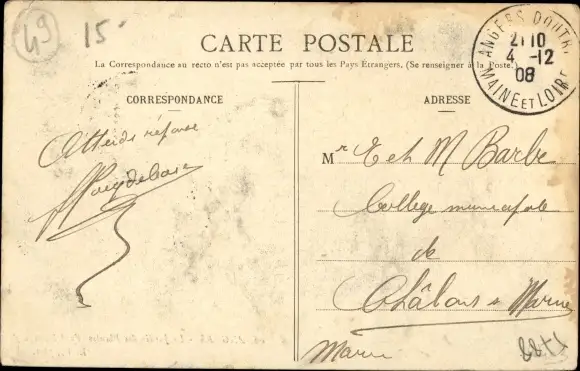 49
15
CARTE POSTALE
La Correspondance au recto n'est pas acceptée par tous les Pays Étrangers, (Se renseigner à la Poste.)
ANGERS DOUTRE
21 10
4 -12
08
MAINE ET LOIRE
CORRESPONDANCE
Attends réponse
ADRESSE
Mr E et M Barbe
College municipale
de
Châlons s Marne
Marne